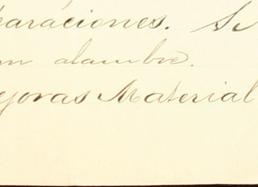 paraciones. S
m alambre.
joras Material